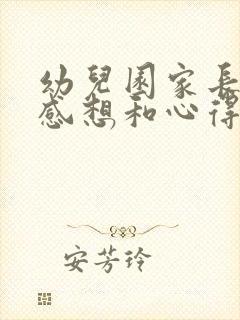 幼兒園家長
感想和心得
安芳玲